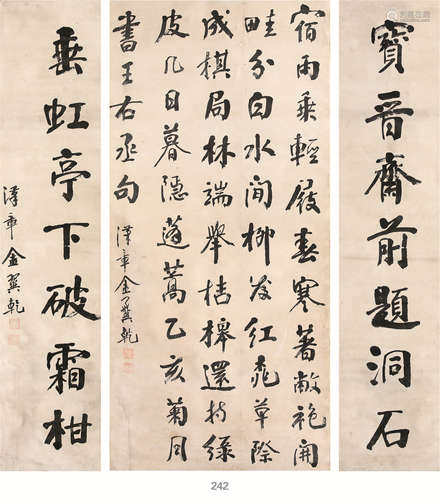 寶晉齋前題洞石
宿雨乘輕屐春寒著敝袍開
畦分白水間柳發紅桃草際
成棋局林端舉桔槔還持綠
皮几日暮隱蓬蒿乙亥菊月
書王右丞句
漢章金翼乾
垂虹亭下破霜柑
漢章金翼乾
242